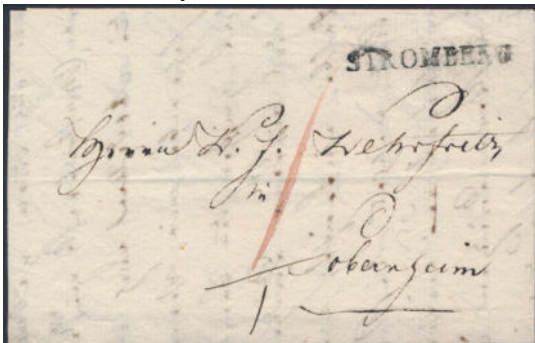 STROMBERG
Herrn W. J. Wehrfritz
in
Sobernheim